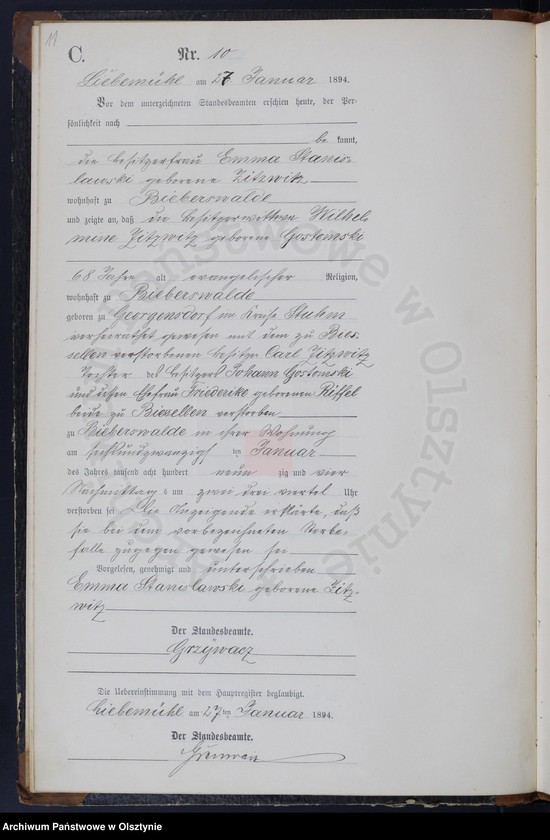 11
C.
Nr. 10
Liebemühl am 27 Januar 1894.
Vor dem unterzeichneten Standesbeamten erschien heute, der Per-
sönlichkeit nach
be kannt,
die Besitzerfrau Emma Stanis-
lawski geborene Zitzwitz
wohnhaft zu Bieberswalde
und zeigte an, daß die Besitzerwittwe Wilhel
mine Zitzwitz geborene Gostomski
68 Jahre alt evangelischer Religion,
wohnhaft zu Bieberswalde
geboren zu Georgensdorf im Kreise Stuhm
verheirathet gewesen mit dem zu Bies-
sellen verstorbenen Besitzer Carl Zitzwitz
Tochter des Besitzers Johann Gostomski
und dessen Ehefrau Friederike geborenen
beide zu verstorben
zu Bieberswalde in ihrer Wohnung
am sechsundzwanzigsten Januar
des Jahres tausend acht hundert neun zig und vier
Nachmittags um zwei drei viertel Uhr
verstorben sei Die Anzeigende erklärte, daß
sie bei dem vorbezeichneten Sterbe-
falle zugegen gewesen sei
Vorgelesen, genehmigt und unterschrieben
Emma Stanislawski geborene Zitz-
witz
Der Standesbeamte.
Grzywacz
Die Uebereinstimmung mit dem Hauptregister beglaubigt.
Liebemühl am 27ten Januar 1894.
Der Standesbeamte.
Archiwum Państwowe w Olsztynie
Archiwum Państwowe w Olsztynie